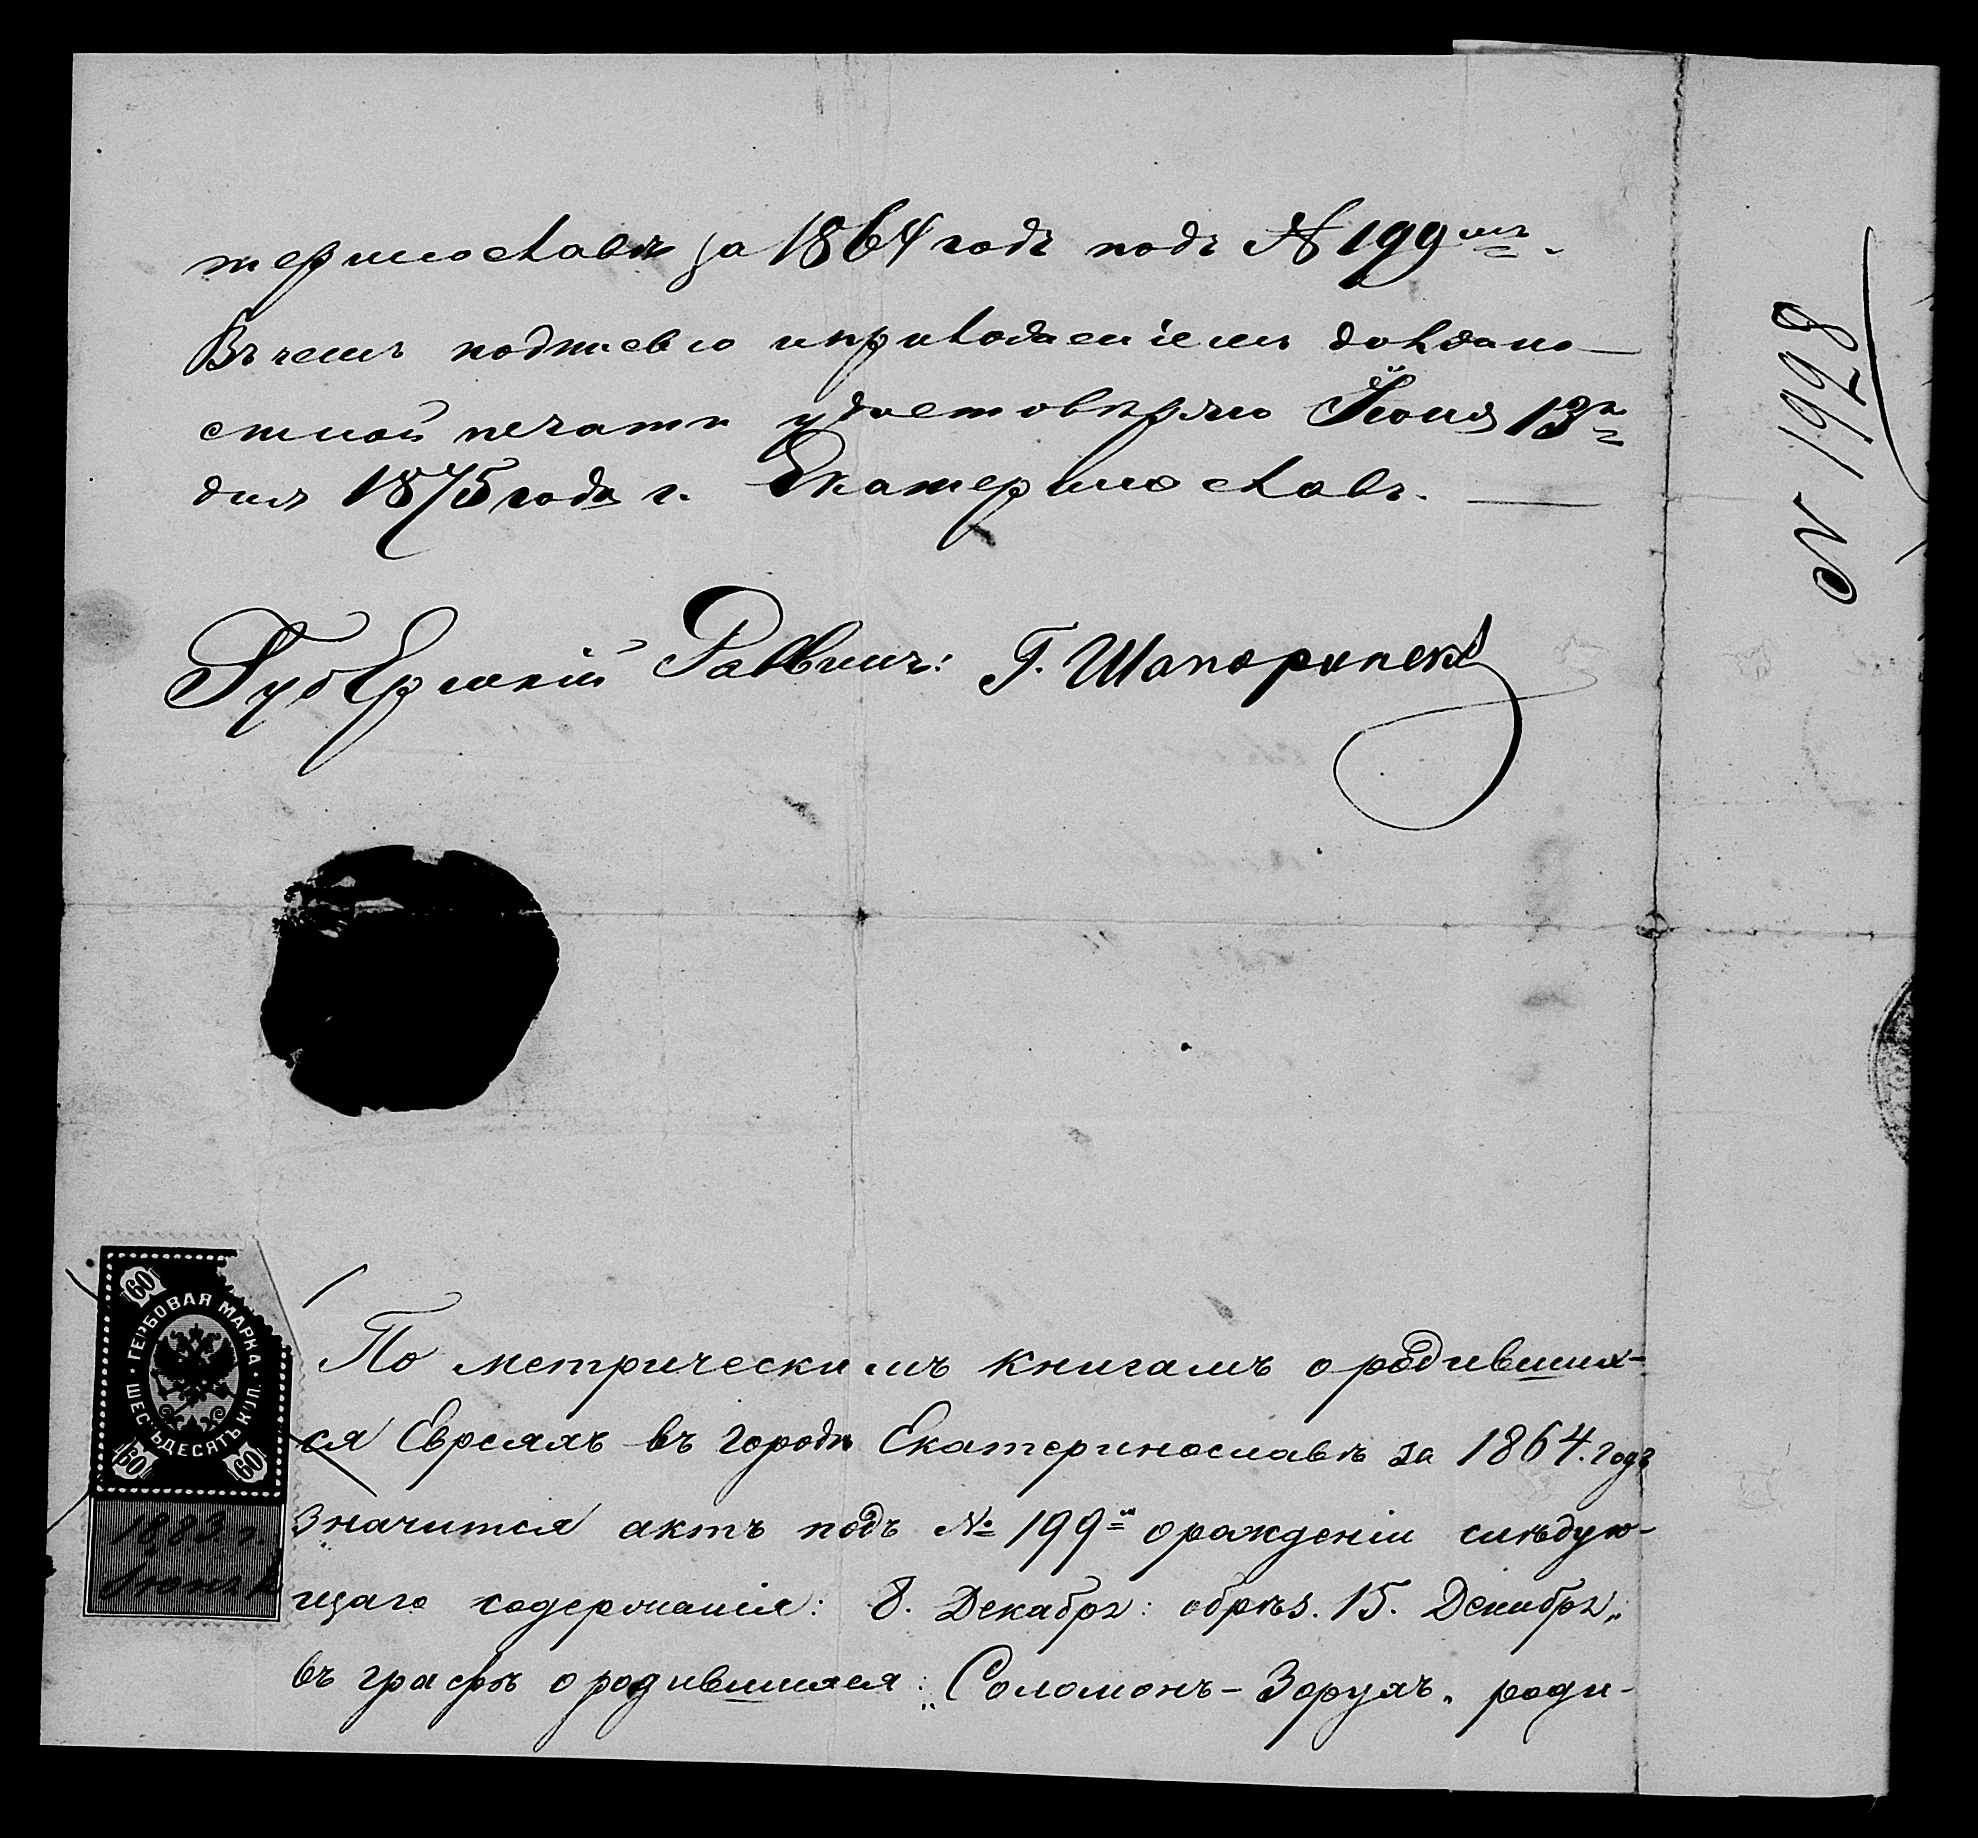 теринославѣ за 1864 годъ подъ № 199мъ.
Въ чемъ подписью и приложеніемъ должно-
стной печати удостовѣряю Іюня 13го
дня 1875 года г. Екатеринославъ. —
Губернскій Раввинъ: Г. Шапоринскій
№ 1198
ГЕРБОВАЯ МАРКА
ШЕСТЬДЕСЯТЪ КОП.
60
60
60
1883 г.
По метрическимъ книгамъ о родивших-
ся Евреяхъ въ городѣ Екатеринославѣ за 1864. годъ
значится актъ подъ № 199м о рожденіи слѣдую-
щаго содержанія: 8. Декабря: обрѣз. 15. Декабря„
въ графѣ о родившихся: „Соломонъ-Зорухъ„ роди-